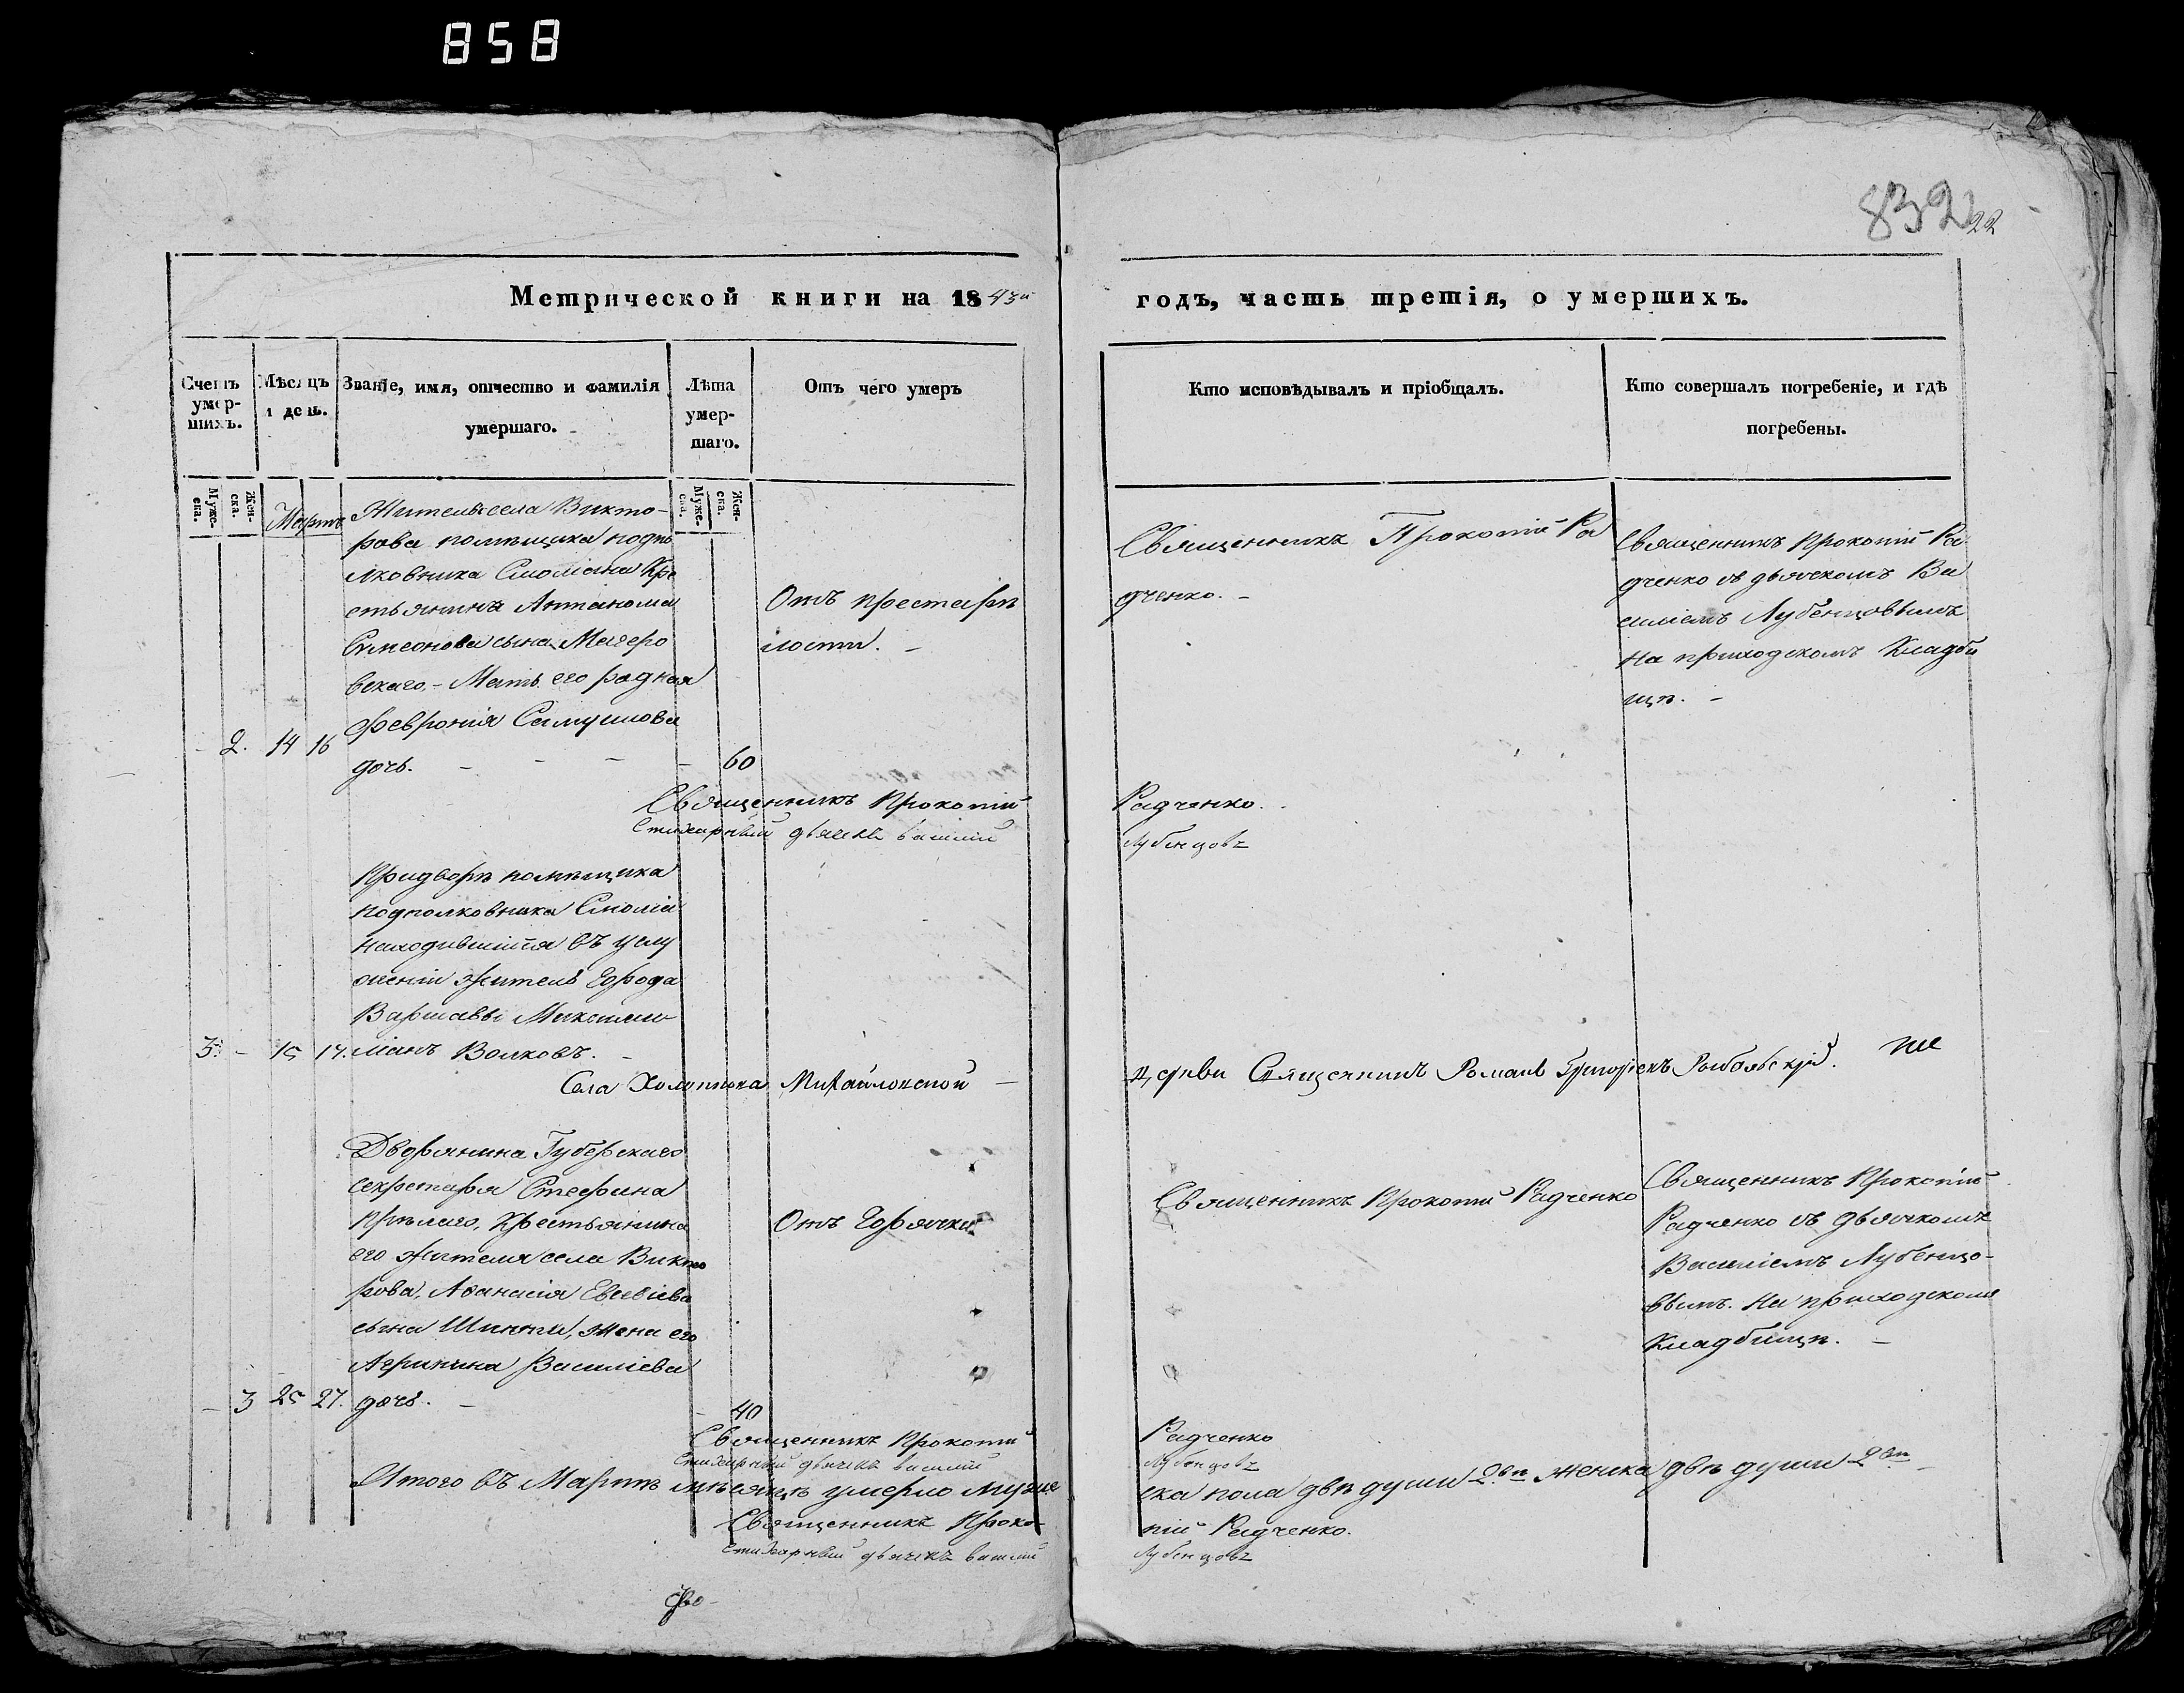 858
832
22
Метрической книги на 1843й
годъ, часть третія, о умершихъ.
Счетъ умер-шихъ.
Мѣсяцъ и день.
Званіе, имя, отчество и фамилія умершаго.
Лѣта умер-шаго.
Отъ чего умеръ
Кто исповѣдывалъ и пріобщалъ.
Кто совершалъ погребеніе, и гдѣ погребены.
Муже-ска.
Жен-ска.
Муже-ска.
Жен-ска.
Мартъ
Жителя села Викто-
рова помѣщика подпо
лковника Смоліана Кре
стьянина Антанома
Симеонова сына
вскаго. – Мать его родная
Феврония Самуилова
2. 14 16
дочь. – – – – 60
Отъ престарѣ
лости. –
Священникъ Прокопій Ра
дченко. –
Священникъ Прокопій Ра
дченко съ дьячкомъ Ва
силіемъ Лубенцовымъ
На приходскомъ Кладби
щѣ. –
Священникъ Прокопій
Радченко.
Стихарный дьячекъ Василій
Лубенцовъ
Придворѣ помѣщика
подполковника Смоліа
находившійся въ услу
женіи житель Города
Варшавы Максими-
3. – 15 17. ліанъ Волковъ. –
Села Михайловской –
церкви Священникъ Романъ
Дворянина Губерскаго
секретаря Стефана
Крестьянина
его жителя села Викто
рова, Афанасія Евсевіева
сына жена его
Агрипина Василіева
– 3 25 27. дочь. – – 40
Отъ Горячки
Священникъ Прокопій Радченко
Священникъ Прокопій
Радченко съ дьячкомъ
Василіемъ Лубенцо-
вымъ. На приходскомъ
Кладбищѣ. –
Священникъ Прокопій
Радченко
Стихарный дьячекъ Василій
Лубенцовъ
Итого въ Мартѣ мѣсяцѣ умерло муже
ска пола двѣ души 2вѣ женска двѣ души 2вѣ
Священникъ Проко-
пій Радченко.
Стихарный дьячекъ Василій
Лубенцовъ